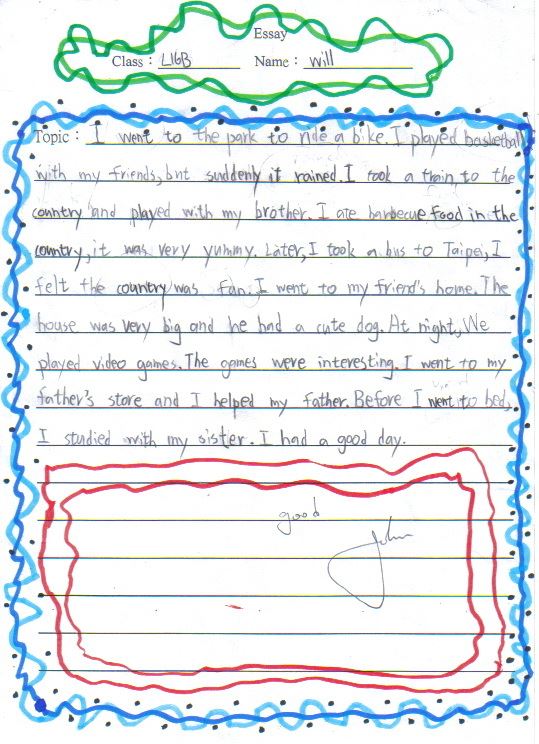 Essay
Class : L16B Name : Will
Topic : I went to the park to ride a bike. I played basketball
with my friends, but suddenly it rained. I took a train to the
country and played with my brother. I ate barbecue food in the
country, it was very yummy. Later, I took a bus to Taipei, I
felt the country was fan. I went to my friend's home. The
house was very big and he had a cute dog. At night, We
played video games. The games were interesting. I went to my
father's store and I helped my father. Before I went to bed,
I studied with my sister. I had a good day.
good
John